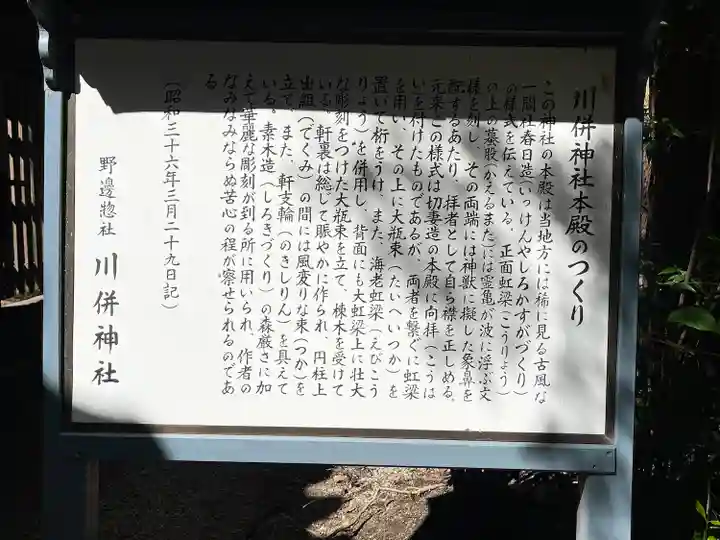 川併神社本殿のつくり
この神社の本殿は当地方には稀に見る古風な
一間社春日造(いっけんやしろかすがづくり)
の様式を伝えている。正面虹梁(こうりょう)
の上の蟇股(かえるまた)には霊亀が波に浮ぶ文
様を刻し、その両端には神獣に擬した象鼻を
配するあたり、拝者として自ら襟を正しめる。
元来この様式は切妻造の本殿に向拝(こうは
い)を付けたものであるが、両者を繋ぐに虹梁
を用い、その上に大瓶束(たいへいつか)を
置いて桁をうけ、また、海老虹梁(えびこう
りょう)を併用し、背面にも大虹梁上に壮大
な彫刻をつけた大瓶束を立て、棟木を受けて
いる。軒裏は総じて賑やかに作られ、円柱上
出組(でぐみ)の間には風変りな束(つか)を
立て、また、軒支輪(のきしりん)を具えて
いる。素木造(しろきづくり)の森厳さに加
えて華麗な彫刻が到る所に用いられ、作者の
なみなみならぬ苦心の程が察せられるのであ
る
(昭和三十六年三月二十九日記)
野邊惣社 川併神社